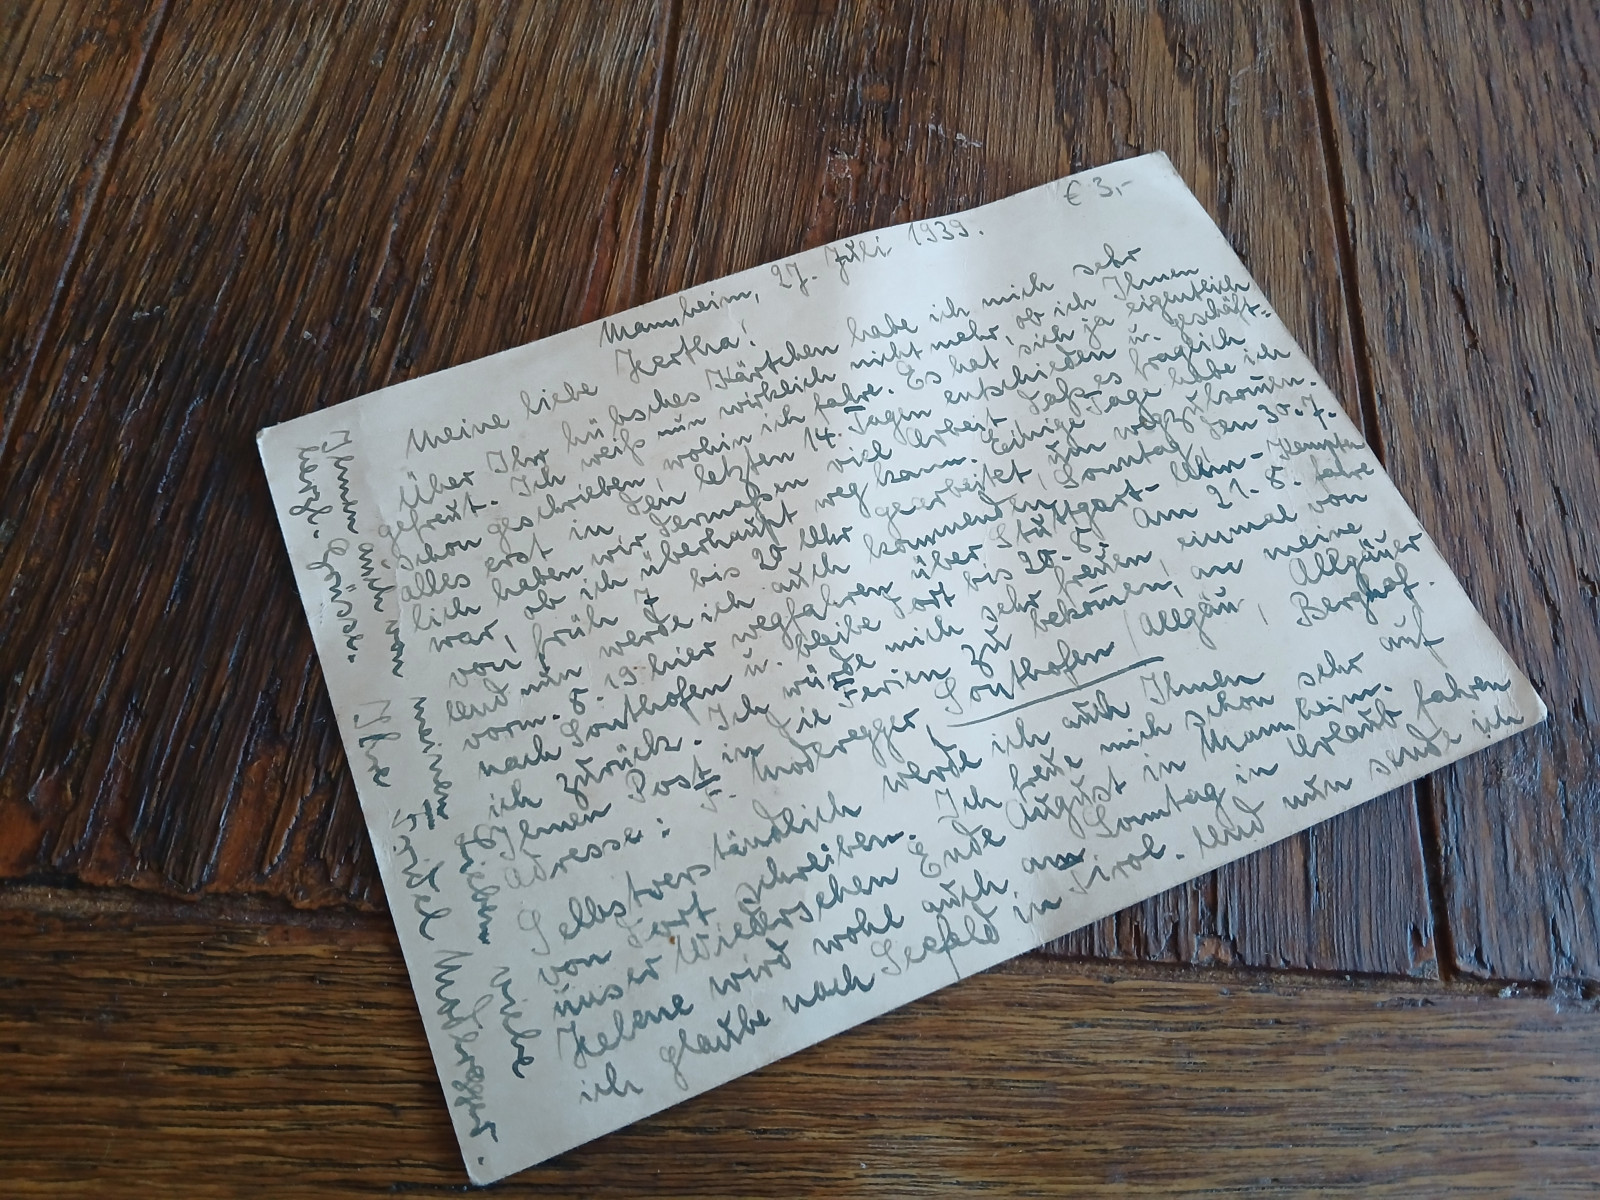 € 3,-
Mannheim, 27. Juli 1939.
Meine liebe Hertha!
Über Ihr hübsches Kärtchen habe ich mich sehr
gefreut. Ich weiß nun wirklich nicht mehr, ob ich Ihnen
schon geschrieben, wohin ich fahre. Es hat sich ja eigentlich
alles erst in den letzten 14. Tagen entschieden u. geschäft=
lich haben wir dermaßen viel Arbeit, daß es fraglich
war, ob ich überhaupt weg kann. Einige Tage habe ich
von früh 7 bis 20 Uhr gearbeitet, um wegzukommen.
Und nun werde ich auch kommenden Sonntag, den 30.7.
vorm. 8.19 hier wegfahren über Stuttgart-Ulm-Kempten
nach Sonthofen u. bleibe dort bis 20.8. Am 21.8. fahre
ich zurück. Ich würde mich sehr freuen einmal von
Ihnen Post in die Ferien zu bekommen, an meine
Adresse: F. Moderegger, Sonthofen / Allgäu, Allgäuer
Berghof.
Selbstverständlich werde ich auch Ihnen
von dort schreiben. Ich freue mich schon sehr auf
unser Wiedersehen Ende August in Mannheim.
Helene wird wohl auch am Sonntag in Urlaub fahren
ich glaube nach Seefeld in Tirol. Und nun sende ich
Ihnen auch von meinen Lieben viele
herzl. Grüsse. Ihre Friedel Moderegger.